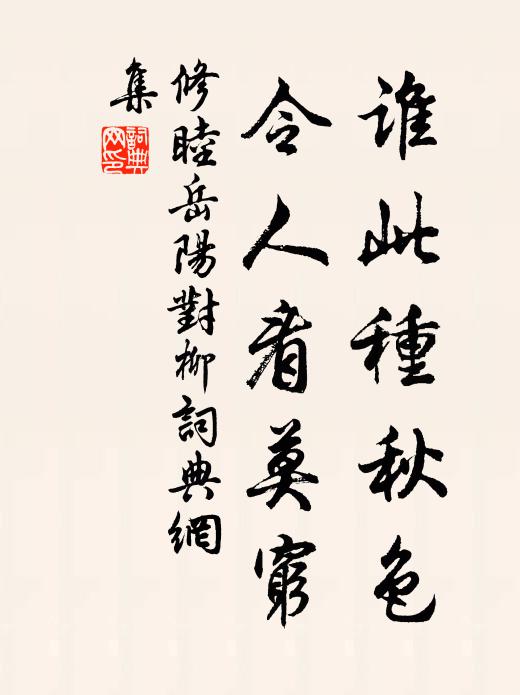 誰此種秋色
令人看莫窮
修睦岳陽對柳詞典網
集
詞典網印